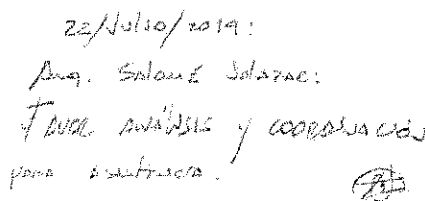 22/Julio/2019:
Arq. Salomé Salazar:
Favor análisis y coordinación
para asistencia.